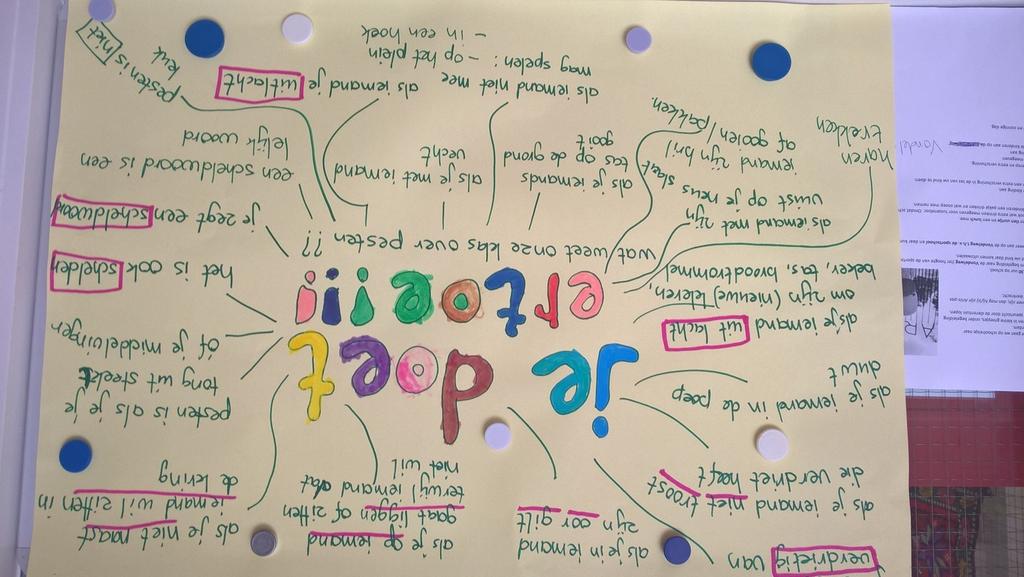 verdrietig van
als je in iemand
zijn oor gilt
als je op iemand
gaat liggen of zitten
terwijl iemand dat
niet wil
als je niet naast
iemand wil zitten in
de kring
als je iemand niet troost
die verdriet heeft
als je iemand in de poep
duwt
je doet
ertoe!!!!
pesten is als je je
tong uit steekt
of je middelvinger
het is ook schelden
je zegt een scheldwoord
een scheldwoord is een
lelijk woord
pesten is niet
leuk
als je iemand uitlacht
om zijn (nieuwe) kleren,
beker, tas, broodtrommel
wat weet onze klas over pesten ??
als iemand met zijn
vuist op je neus slaat
haren
trekken
iemand zijn bril
af gooien / pakken.
als je iemands
tas op de grond
gooit
als je met iemand
vecht
als iemand niet mee
mag spelen: - op het plein
- in een hoek
als iemand je uitlacht